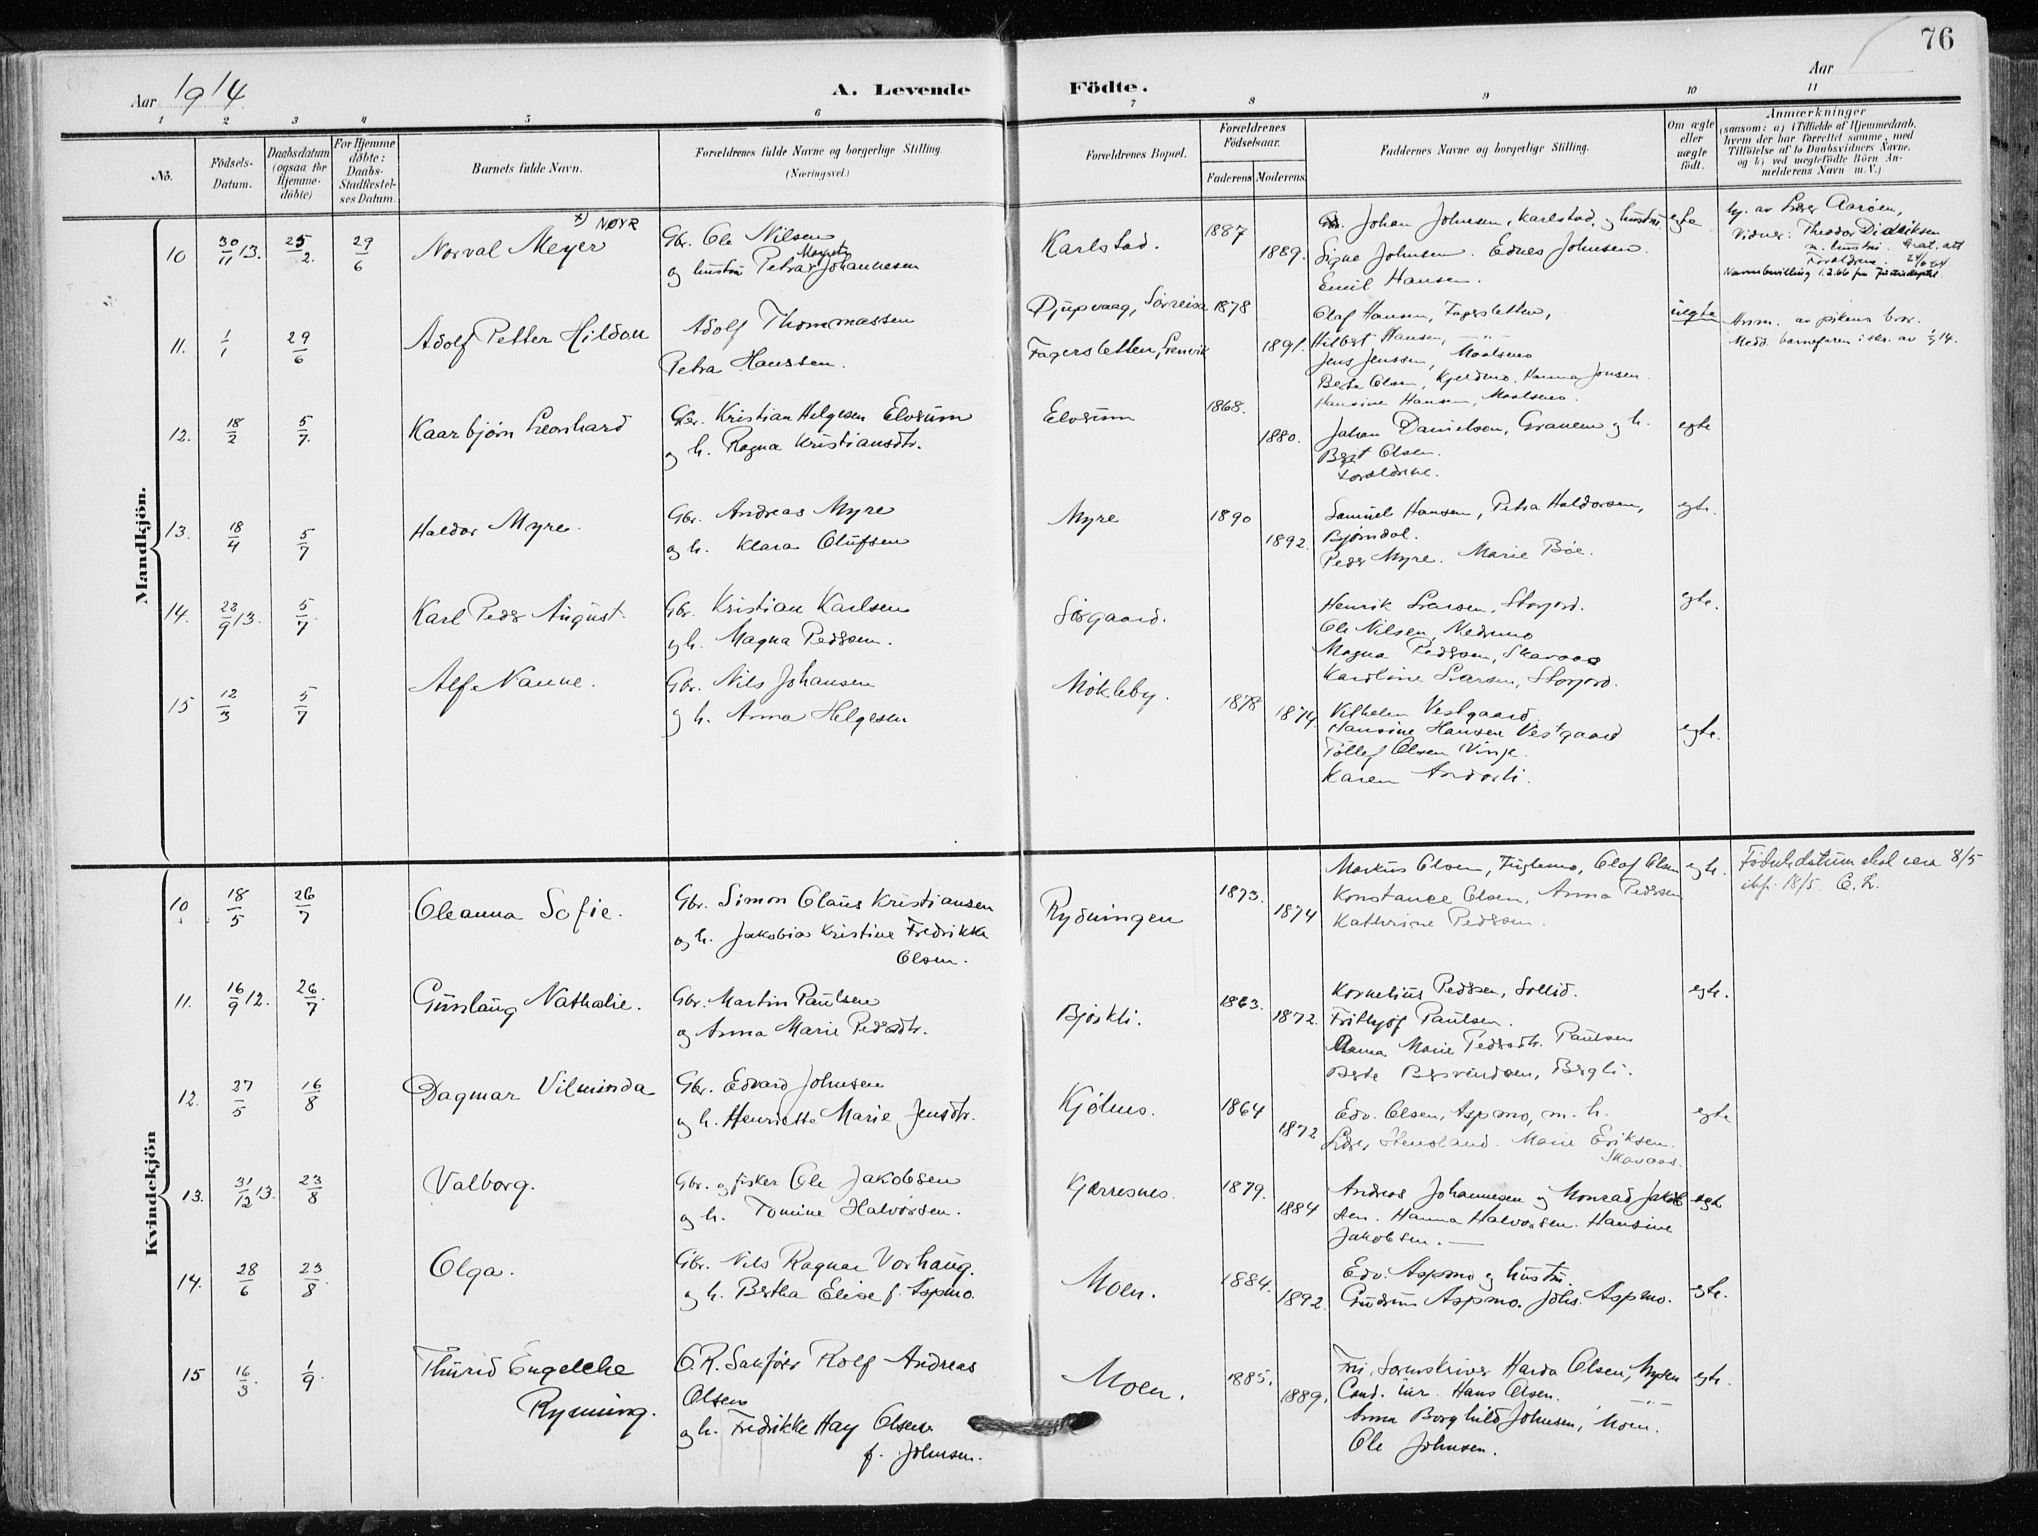 76
Aar 1914
A. Levende Födte.
Aar
1 2 3 4 5 6 7 8 9 10 11
No.
Födsels-Datum.
Daabsdatum (ogsaa for Hjemme-döbte)
For Hjemme döbte: Daabs-Stadfæstel-ses Datum.
Barnets fulde Navn.
Forældrenes fulde Navne og borgerlige Stilling.
(Næringsvei.)
Forældrenes Bopæl.
Forældrenes Födselsaar.
Faderens Moderens
Faddernes Navne og borgerlige Stilling.
Om ægte eller uægte födt.
Anmærkninger
(saasom: a) i Tilfælde af Hjemmedaab, hvem der har forrettet samme, med Tilföielse af to Daabsvidners Navne. og b) ved uegtefödte Börn An-melderens Navn m. V.)
Mandkjön.
x) NØYR
10 30/11 13. 25/2. 29/6 Norval Meyer
Gbr. Ole Nilsen
Margrete
og hustru Petra Johannesen
Karlstad. 1887 1889.
Johan Johnsen, Karlstad, og hustru
Signe Johnsen. Ednes Johnsen.
Emil Hansen.
egte
hj. av Lærer Aarøen,
Vidner: Theodor Didriksen
m. hustru.
Forældrene.
Navnebevilling 1.2.66 fra
11. 1/1 29/6 Adolf Petter Hildon
Adolf Thommassen
Petra Hanssen.
Djupvaag, Sørreisa 1878
Fagersletten, Lenvik 1891.
Olaf Hansen, Fagersletten,
Hilbert Hansen, —"—
Jens Jenssen, Maalsnes
Berte Olsen, Kjeldmo. Hanna Jensen.
Hansine Hansen, Maalsnes.
uegte
Anm. av pikens bror.
Medd. barnefaren i skr. av
12. 18/2 5/7. Kaarbjørn Leonhard
Gbr. Kristian Helgesen Elvevum
og h. Ragna Kristiansdtr.
1868. 1880.
Johan Danielsen, Granum og h.
Berit Olsen.
Forældrene.
egte
13. 18/4 5/7 Haldor Myre.
Gbr. Andreas Myre
og h. Klara Olufsen
Myre 1890 1892.
Samuel Hansen, Petra Haldorsen,
Bjørndal.
Peder Myre. Marie Bøe.
egte.
14. 22/9 13. 5/7 Karl Peder August.
Gbr. Kristian Karlsen
og h. Magna Pedersen.
Sørgaard.
Henrik Larsen, Storjord.
Ole Nilsen, Nedremo
Magna Pedersen, Skavaas
Karoline Larsen, Storjord.
egte.
15 12/3 5/7 Alf Nanne.
Gbr. Nils Johansen
og h. Anna Helgesen
Møkleby. 1878 1874.
Vilhelm Vestgaard.
Hansine Hansen Vestgaard
Tollef Olsen Vinje.
Karen Anderli.
egte.
Kvindekjön
10 18/5 26/7 Oleanna Sofie.
Gbr. Simon Claus Kristiansen
og h. Jakobia Kristine Fredrikke
Olsen.
Rydningen 1873. 1874
Markus Olsen, Fuglemo, Olaf Olsen
Konstance Olsen, Anna Pedersen
Kathrine Pedersen.
egte.
Fødselsdatum skal være 8/5
ikke 18/5.
11. 16/9 12. 26/7. Gunlaug Nathalie.
Gbr. Martin Paulsen
og Anna Marie Pedersdtr.
Bjørkli. 1863. 1872.
Kornelius Pedersen, Sollid.
Fritjof Paulsen.
Anna Marie Pedersdtr. Paulsen
Berte Berntsen, Bergli.
egte.
12. 27/5 16/8 Dagmar Vilminda
Gbr. Edvard Johnsen
og h. Henriette Marie Jensdtr.
Kjølnes. 1864 1872
Edv. Olsen, Aspmo, m. h.
Lærer Stensland. Marie Eriksen.
Skavaas.
egte
13. 31/12 13. 23/8 Valborg.
Gbr. og fisker Ole Jakobsen
og h. Tomine Halvorsen.
Kjerresnes. 1879. 1884
Andreas Johannesen og Monrad Jakob
sen. Hanna Halvorsen. Hansine
Jakobsen. —
egte
14. 28/6 23/8. Olga.
Gbr. Nils Ragnar Vorhaug.
og h. Bertha Elise f. Aspmo.
Moen. 1884. 1892.
Edv. Aspmo og hustru.
Gudrun Aspmo. Johs. Aspmo.
egte.
15 16/3. 1/9 Thurid Engelche
Ryming.
O.R. Sakfører Rolf Andreas
Olsen
og h. Fredrikke Hay Olsen
f. Johnsen.
Moen. 1885. 1889.
Fru Sorenskriver Harda Olsen,
Cand. jur. Hans Olsen. —"—
Anna Borghild Johnsen, Moen.
Ole Johnsen.
egte.